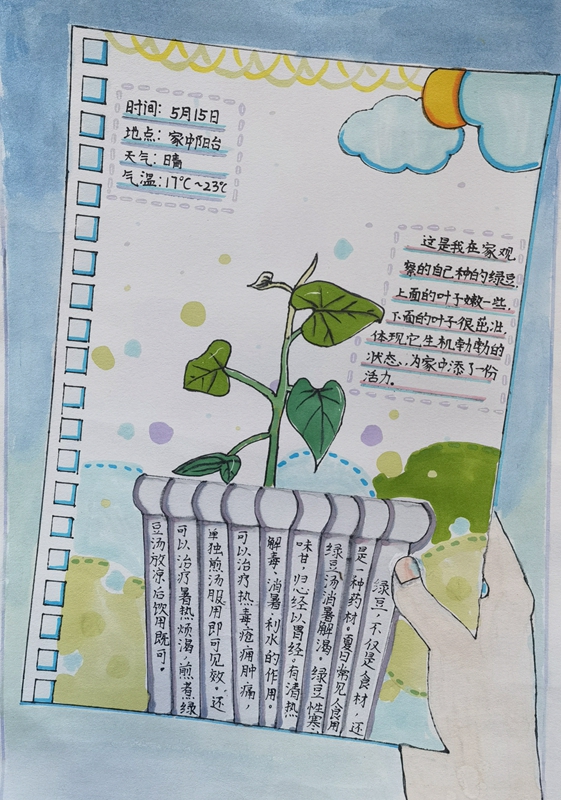 时间：5月15日
地点：家中阳台
天气：晴
气温：17℃~23℃
这是我在家观
察的自己种的绿豆，
上面的叶子嫩一些，
下面的叶子很茁壮，
体现它生机勃勃的
状态，为家中添了一份
活力。
绿豆，不仅是食材，还
是一种药材。夏日常见食用
绿豆汤消暑解渴。绿豆性寒，
味甘，归心经以胃经。有清热
解毒、消暑、利水的作用。
可以治疗热毒疮痈肿痛，
单独煎汤服用即可见效。还
可以治疗暑热烦渴，煎煮绿
豆汤放凉后饮用既可。